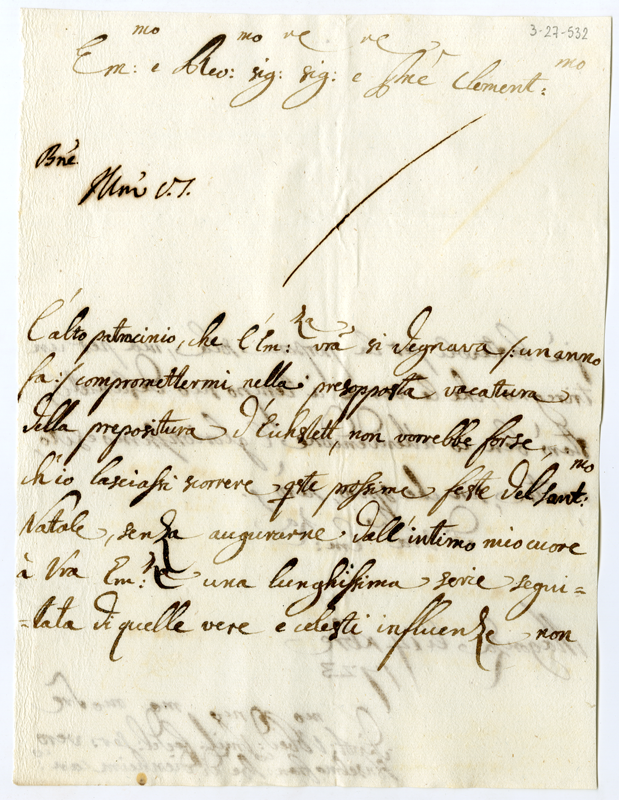 3-27-532
Em:mo e Rev:mo sig:re sig:re e Pne Clement:mo
Bne.
L'alto patrocinio, che l'Em:za vra si degnava /: un anno
fa :/ compromettermi nella presopposta vacatura
della prepositura d'Eichstett, non vorrebbe forse,
ch'io lasciassi scorrere qste prossime feste del sant:mo
Natale, senza augurarne dall'intimo mio cuore
à Vra Em:za una lunghissima serie segui=
=tata di quelle vere e celesti influenze non